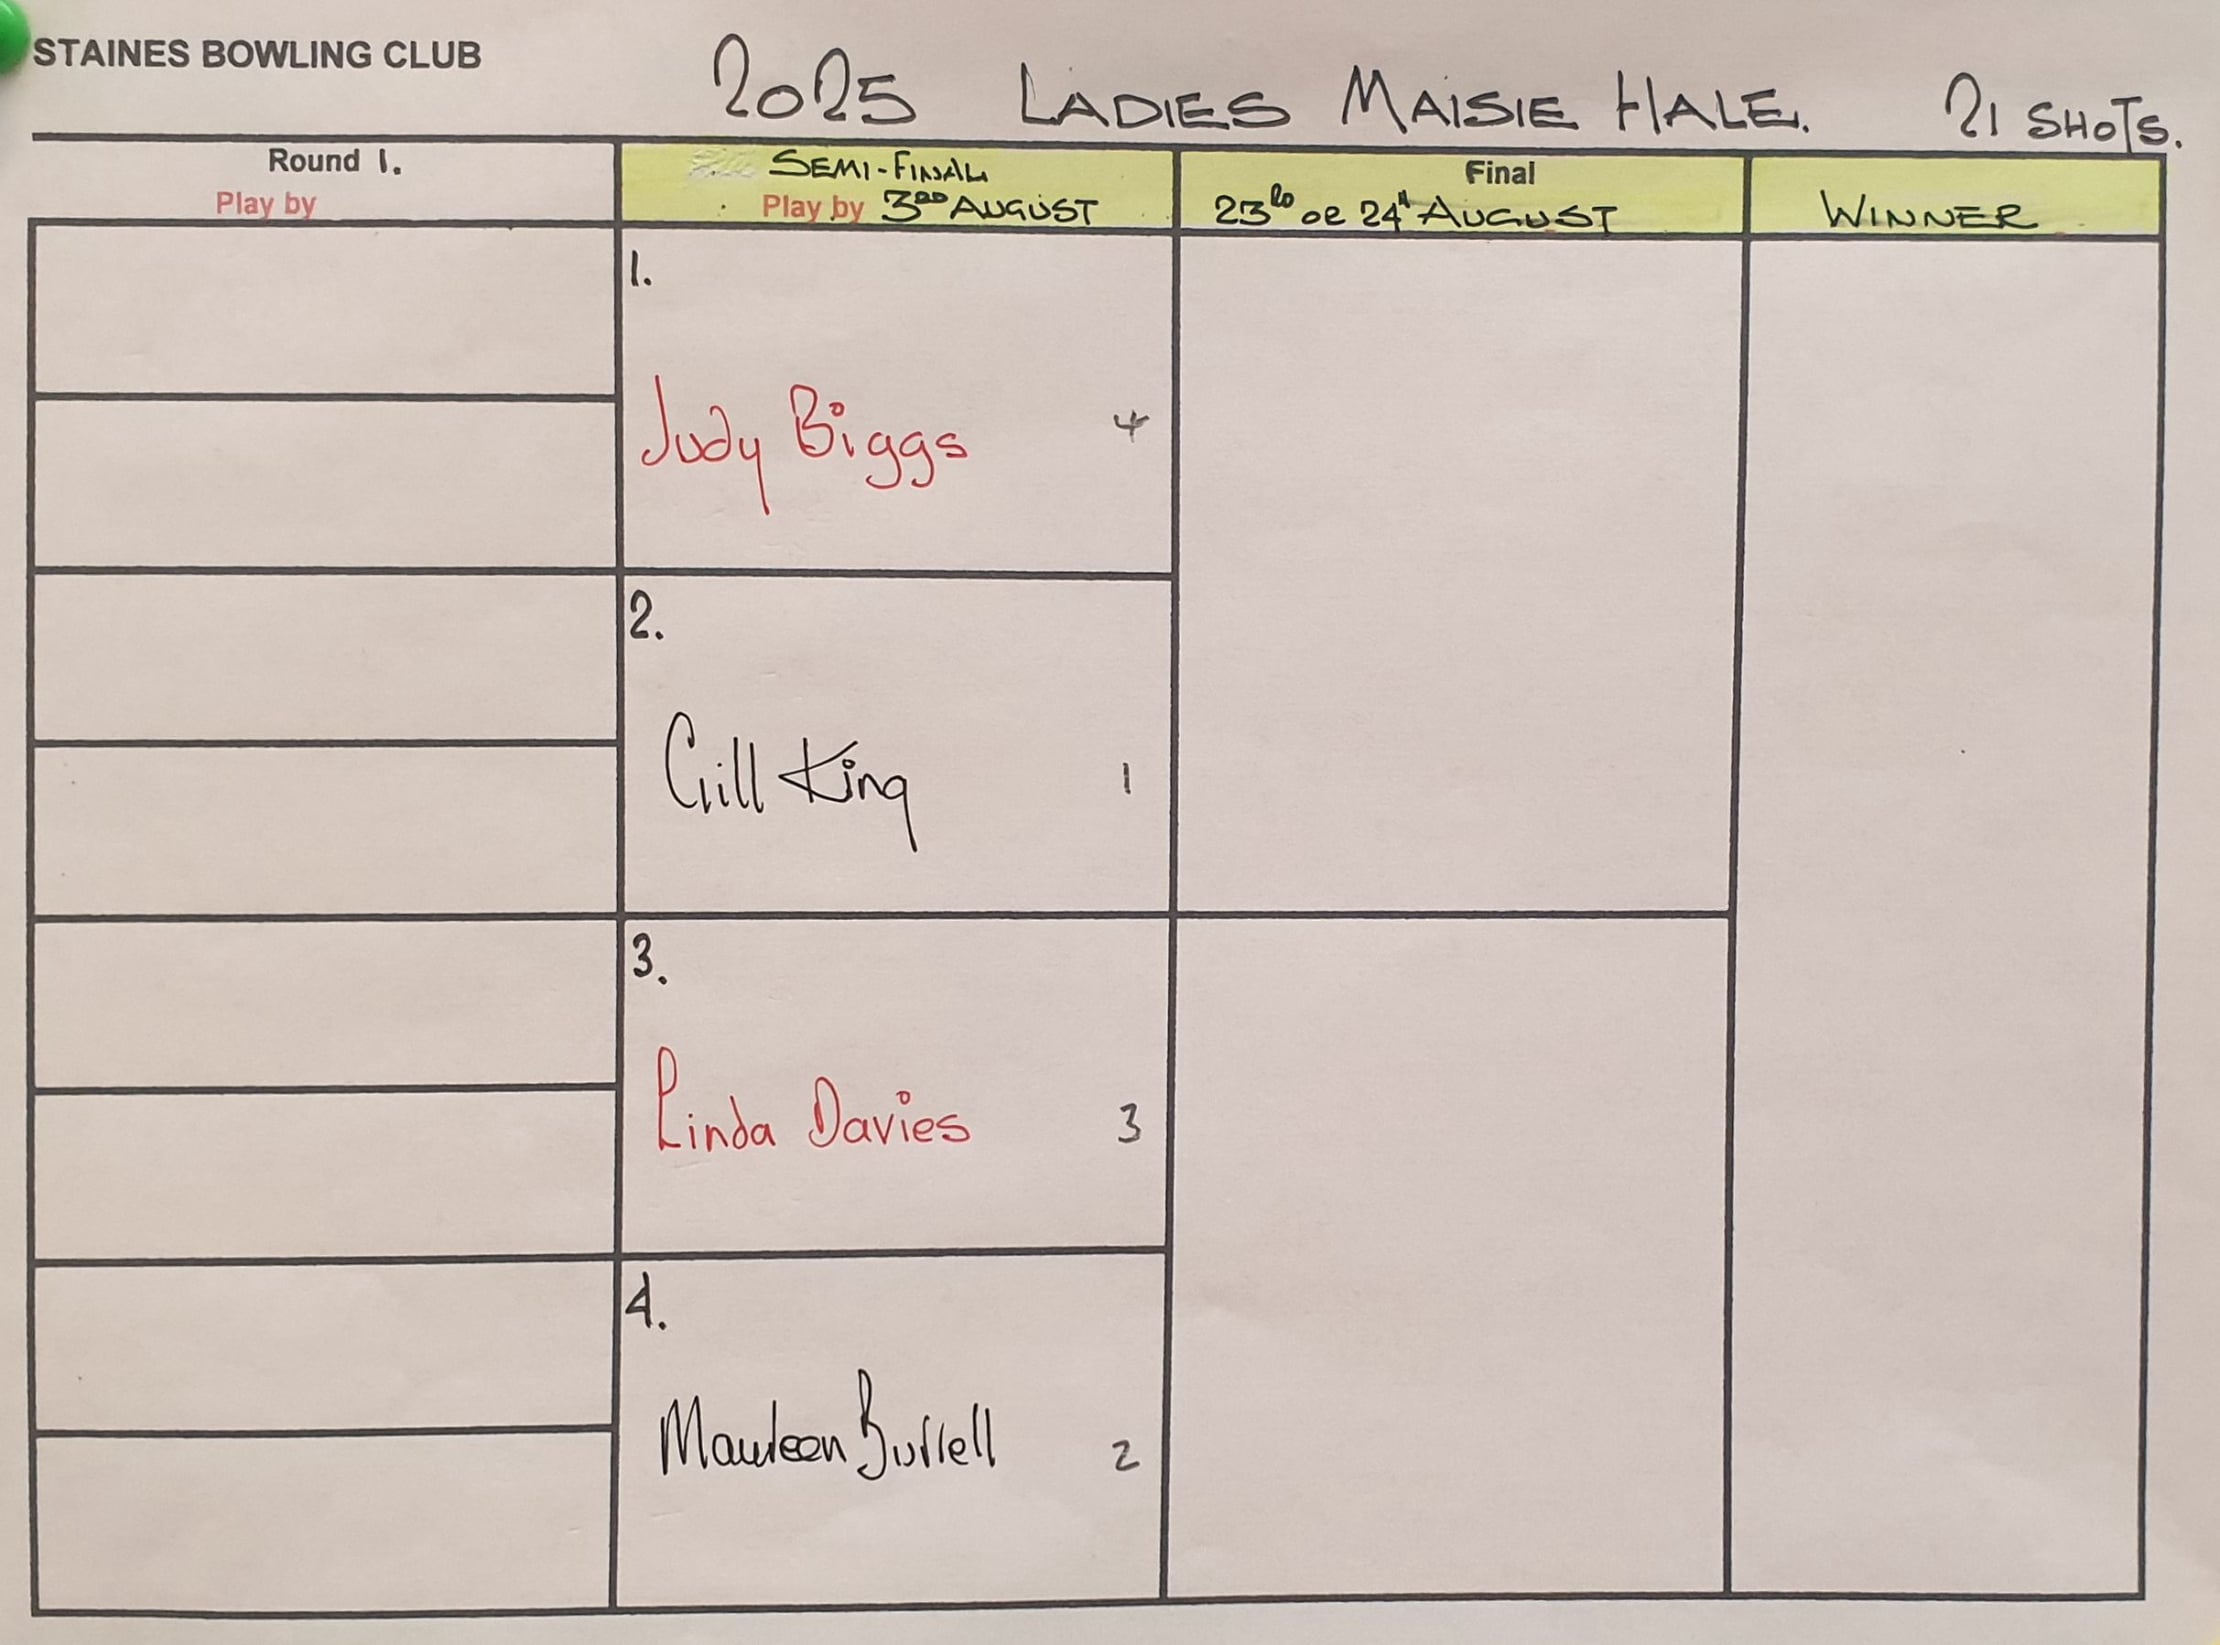 STAINES BOWLING CLUB
2025 LADIES MAISIE HALE. 21 SHOTS.
Round 1.
Play by
SEMI-FINAL
Play by 3RD AUGUST
Final
23RD OR 24TH AUGUST
WINNER
1.
Judy Biggs 4
2.
Gill King 1
3.
Linda Davies 3
4.
Maureen Burrell 2